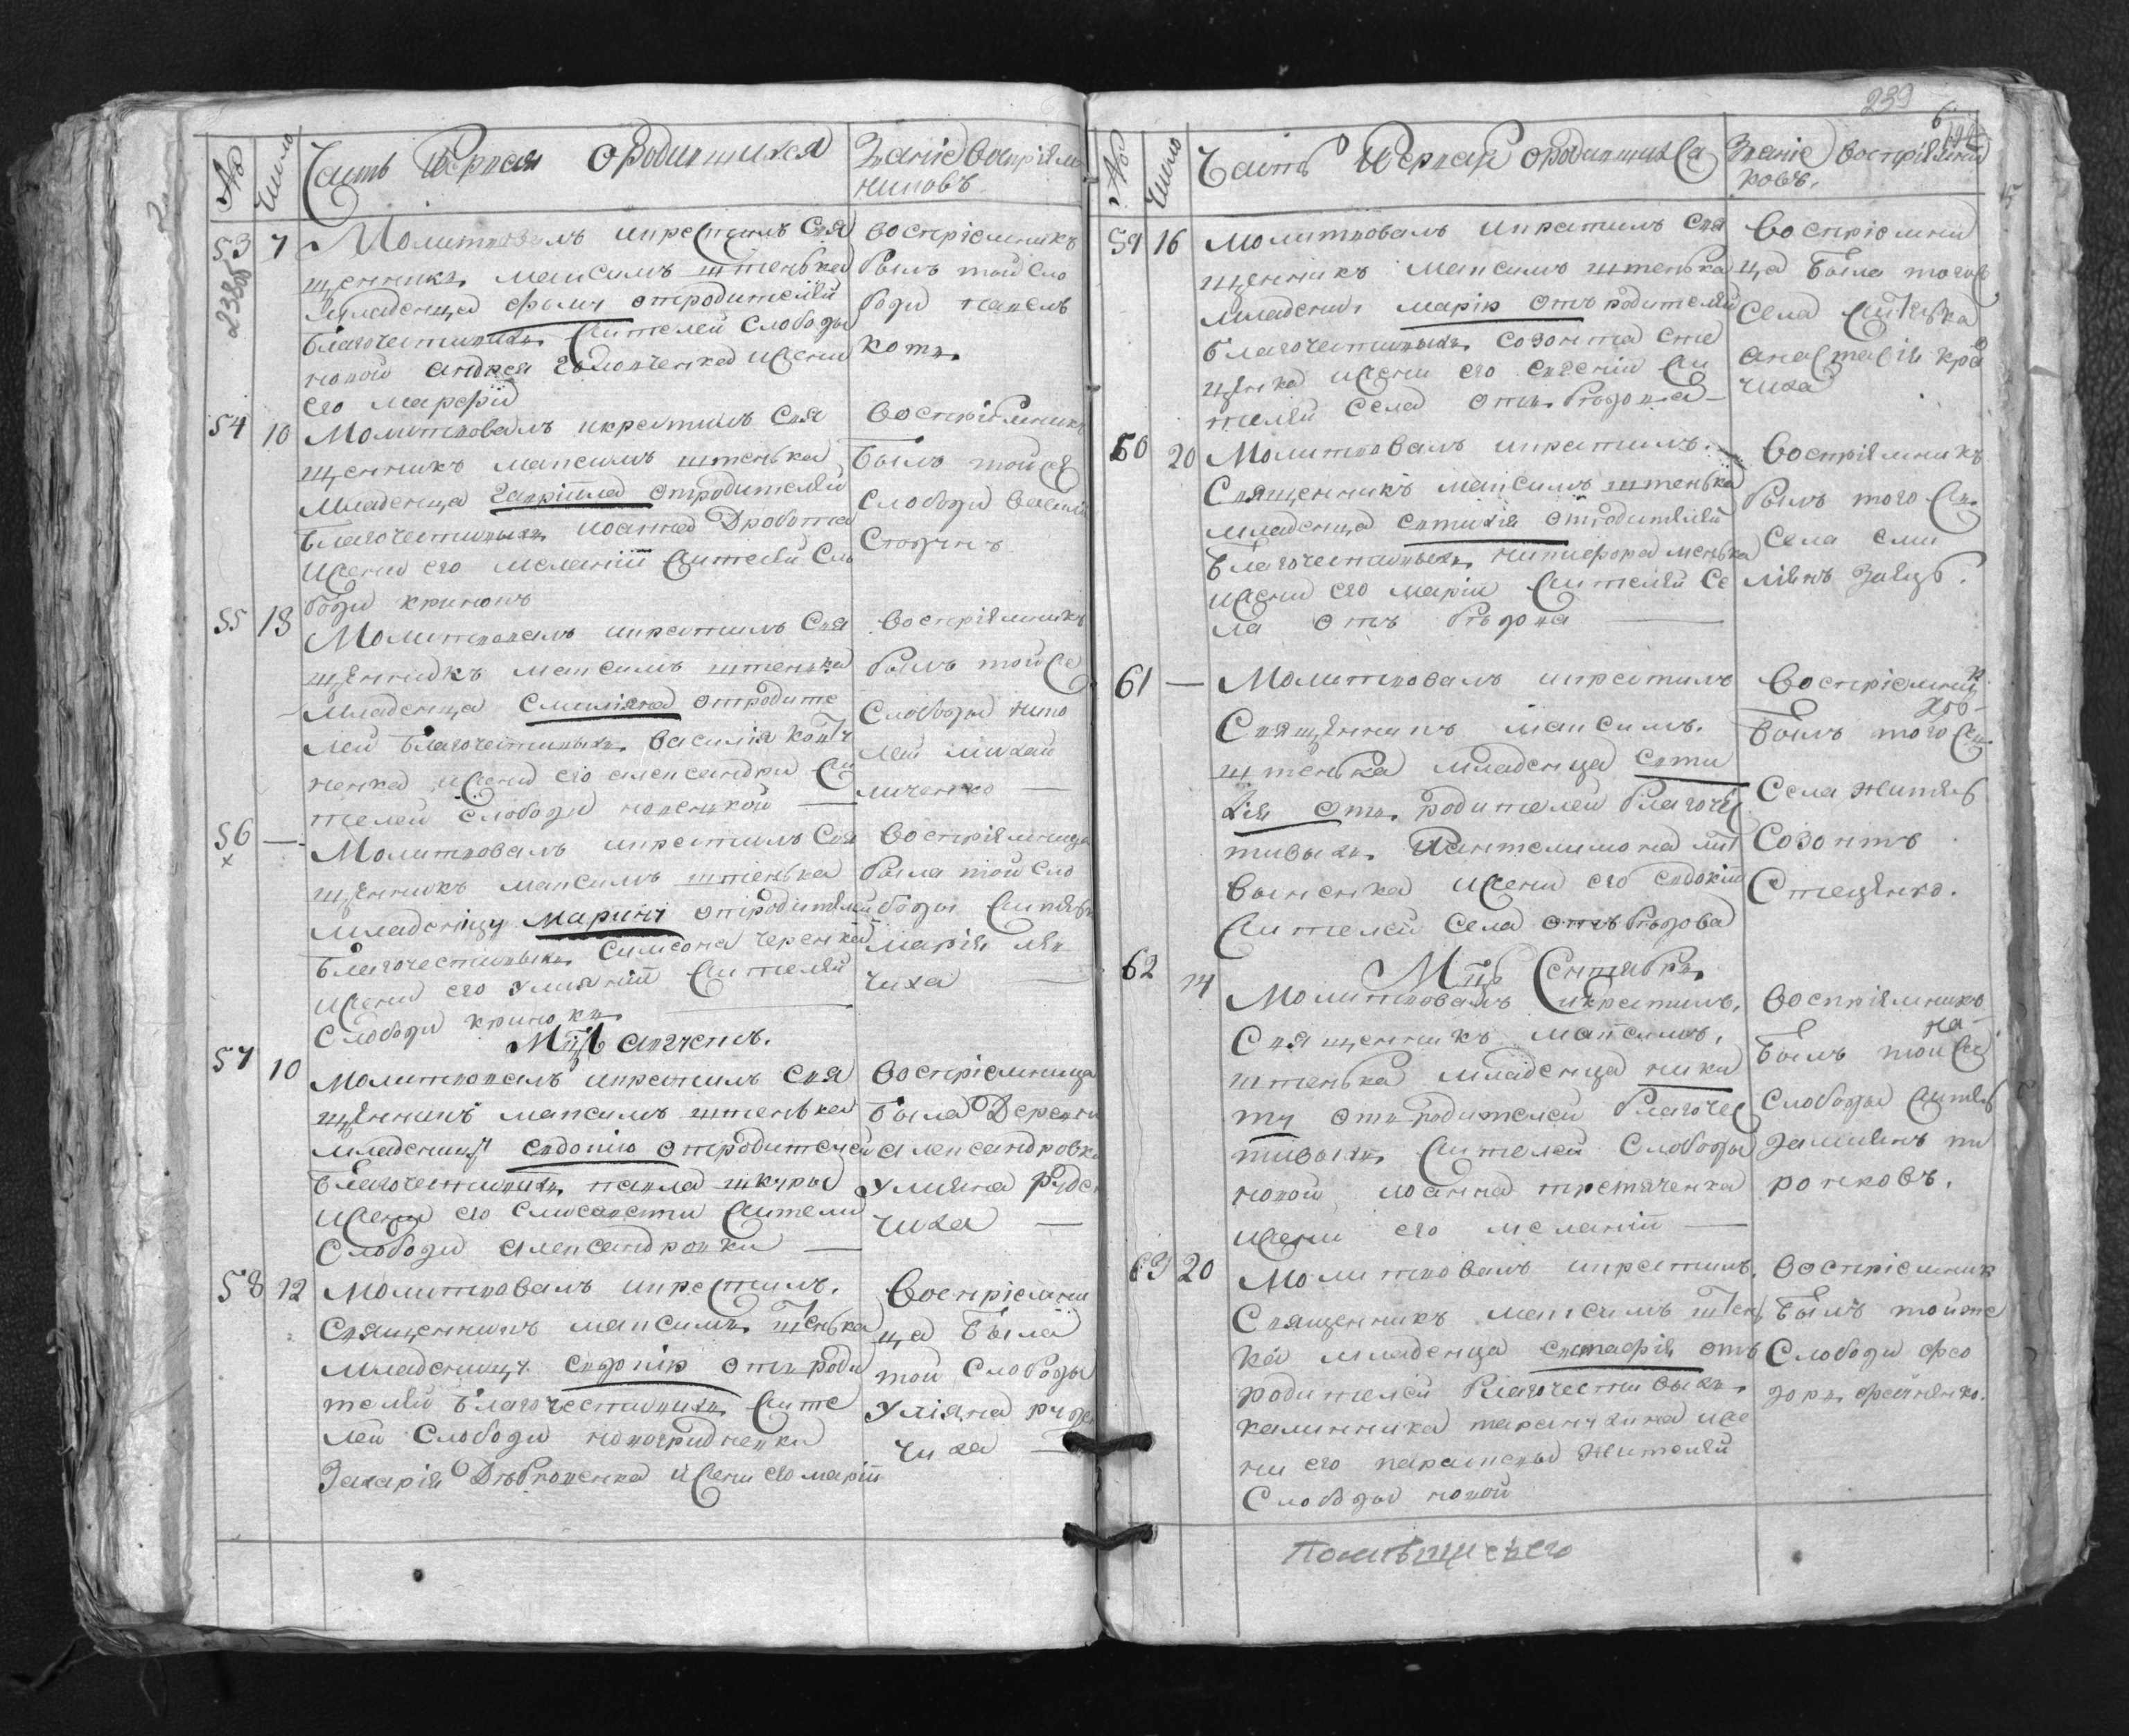 №
Число
Часть Первая ородившихся
Званіе воспріем
никовъ
238об
53 7 Молитвовалъ икрестилъ Свя
щенникъ максимъ штенка
младенца фому отродителей
благочестивыхъ жителей слободы
новой андрея головченка ижени
его марефи
воспріемникъ
былъ той сло
боди павелъ
котъ
54 10 Молитвовалъ икрестилъ Свя
щенникъ максимъ штенька
младенца гавріила отродителей
благочестивыхъ иоанна Дробота
ижени его меланіи жителей Сло
боди кринокъ
воспріемникъ
былъ тойже
слободи васили
55 18 Молитвовалъ икрестилъ Свя
щенникъ максимъ штенька
младенца емиліана отродите
лей благочестивыхъ василія
ненка ижени его александри жи
телей слободи
воспріемникъ
былъ тойже
слободи нико
лай михай
личенко
56 — Молитвовалъ икрестилъ Свя
х
щенникъ максимъ штенька
младеницу марину отродителей
благочестивыхъ симеона черенка
ижени его улияніи жителей
слободи кринокъ
воспріемница
была той сло
боды
марія
чиха
Мцъ августъ.
57 10 Молитвовалъ икрестилъ свя
щенникъ максимъ штенька
младеницу евдокію отродителей
благочестивыхъ павла шкуры
ижени его елисавети жители
слободи александровки
воспріемница
была Деревни
александровки
улияна руден
чиха
58 12 молитвовалъ икрестилъ.
Священникъ максимъ штенька
младеницу отъ роди
телей благочестивыхъ жите
лей слободи
Захарія ижени его маріи
воспріемни
ца была
той слободы
уліяна руден
чиха
239
6
№
Число
Часть Первая ородившихся
Званіе воспріемни
ковъ.
59 16 Молитвовалъ икрестилъ свя
щенникъ максимъ штенька
младеницу марію отъ родителей
благочестивыхъ созонта сте
ценка ижени его евгеніи жи
телей села отъ бѣдова
воспріемни
ца была тогож
села жителька
анастасія кра
чиха
60 20 Молитвовалъ икрестилъ.
Священникъ максимъ штенька
младенца евтихія отродителей
благочестивыхъ никифора
ижени его маріи жителей се
ла отъ бѣдова
воспріемникъ
былъ того ж.
села еми
ліянъ заяцъ.
61 — Молитвовалъ икрестилъ
Священникъ максимъ.
штенька младенца евти
хія отъ родителей благочес
тивыхъ Пантелимона лит
виненка ижени его евдокіи
жителей села отъ бѣдова
воспріемник
былъ того ж.
села житель
Созонтъ
Стеценко.
Мцъ Сентябръ.
62 14 Молитвовалъ икрестилъ,
Священникъ максимъ,
штенька младенца ники
ту отъ родителей благочес
тивыхъ жителей слободы
новой иоанна третяченка
ижени его меланіи
воспріемникъ
былъ той ж
слободы житель
ронковъ.
63 20 Молитвовалъ икрестилъ.
Священникъ максимъ штен
ка младенца евстафія отъ
родителей благочестивыхъ
калинника ижо
ни его параскевы жителей
слободы новой
воспріемник
былъ тойже
слободи фео
доръ